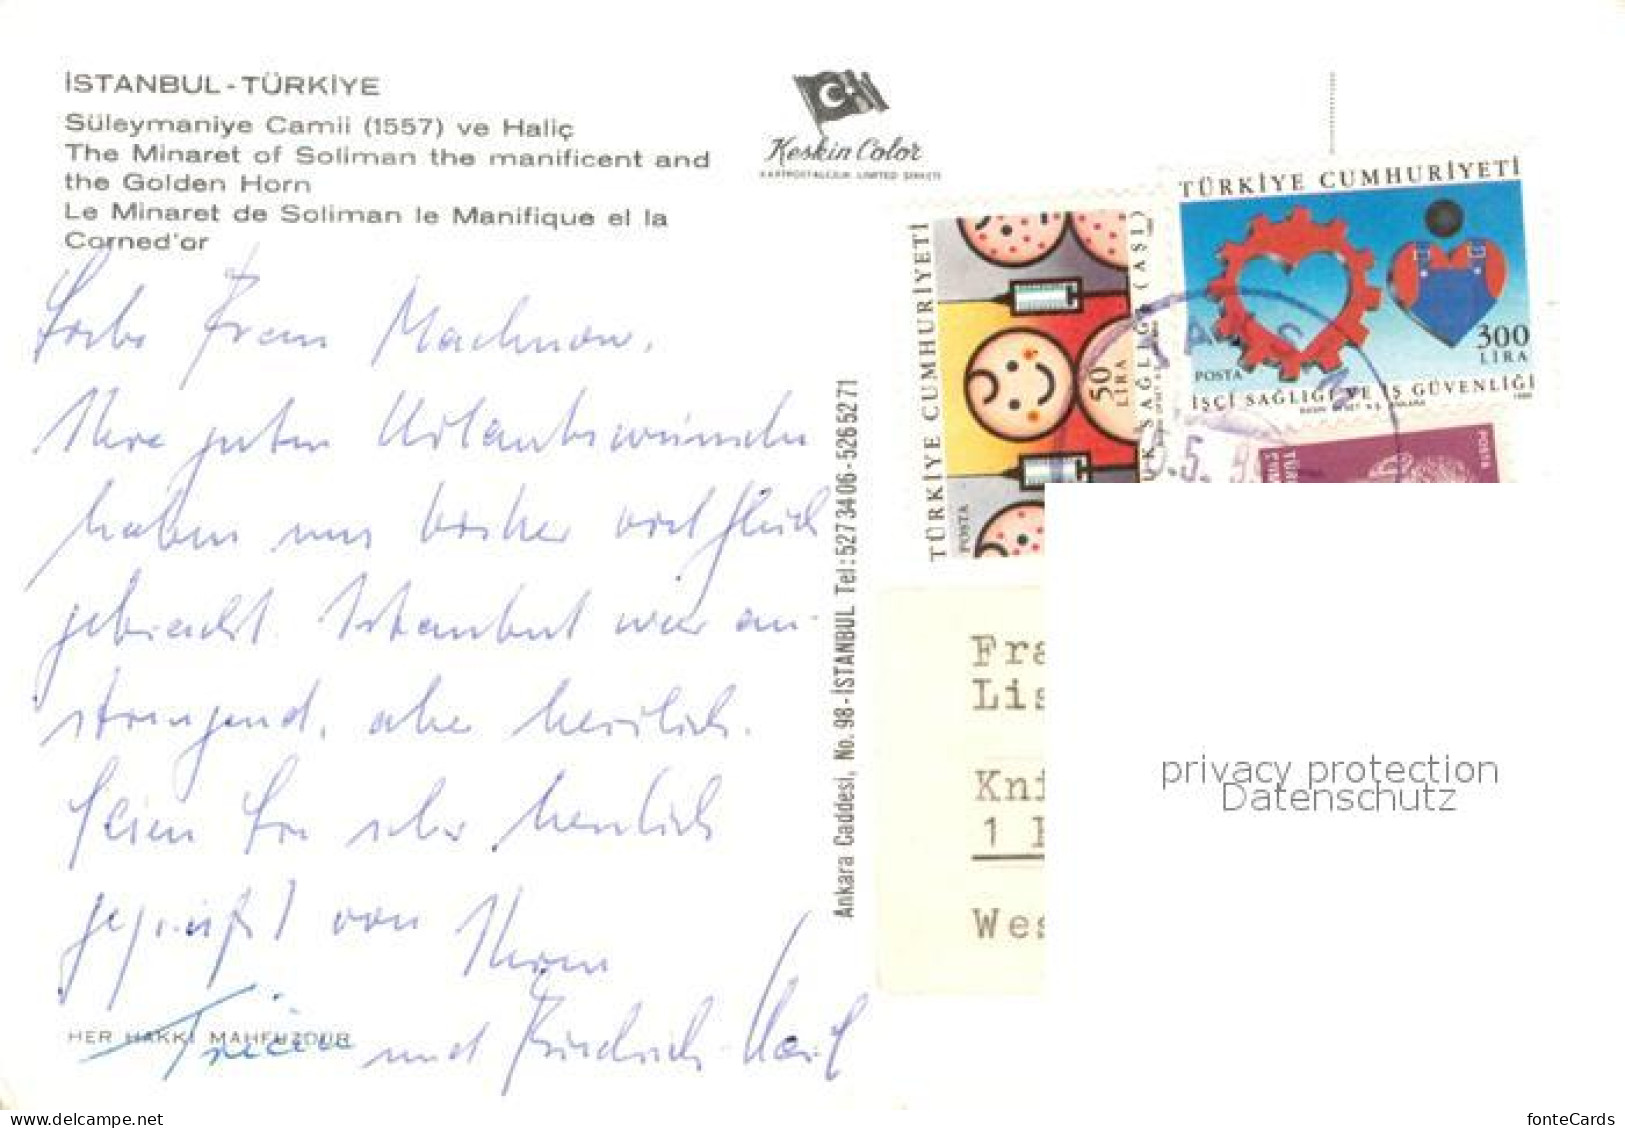 İSTANBUL - TÜRKİYE
Süleymaniye Camii (1557) ve Haliç
The Minaret of Soliman the manificent and
the Golden Horn
Le Minaret de Soliman le Manifique el la
Corned'or
Keskin Color
KARTPOSTALCILIK LIMITED ŞİRKETİ
Liebe Frau Machnow,
Ihre guten Urlaubswünsche
haben uns bisher viel Glück
gebracht. Istanbul war an-
strengend, aber herrlich.
Seien Sie sehr herzlich
gegrüßt von Ihrem
und Friedrich Karl
HER HAKKI MAHFUZDUR
Ankara Caddesi, No. 98 - İSTANBUL Tel: 527 34 06 - 526 52 71
TÜRKİYE CUMHURİYETİ
POSTA
50
LİRA
SAĞLIĞI (AŞI)
TÜRKİYE CUMHURİYETİ
300
LİRA
POSTA
İŞÇİ SAĞLIĞI VE İŞ GÜVENLİĞİ
POSTA
Fra
Lis
Kni
1
Wes
privacy protection
Datenschutz
www.delcampe.net
fonteCards